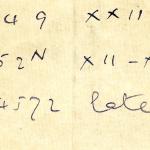 49 XXII
52N XII-X
4572 late